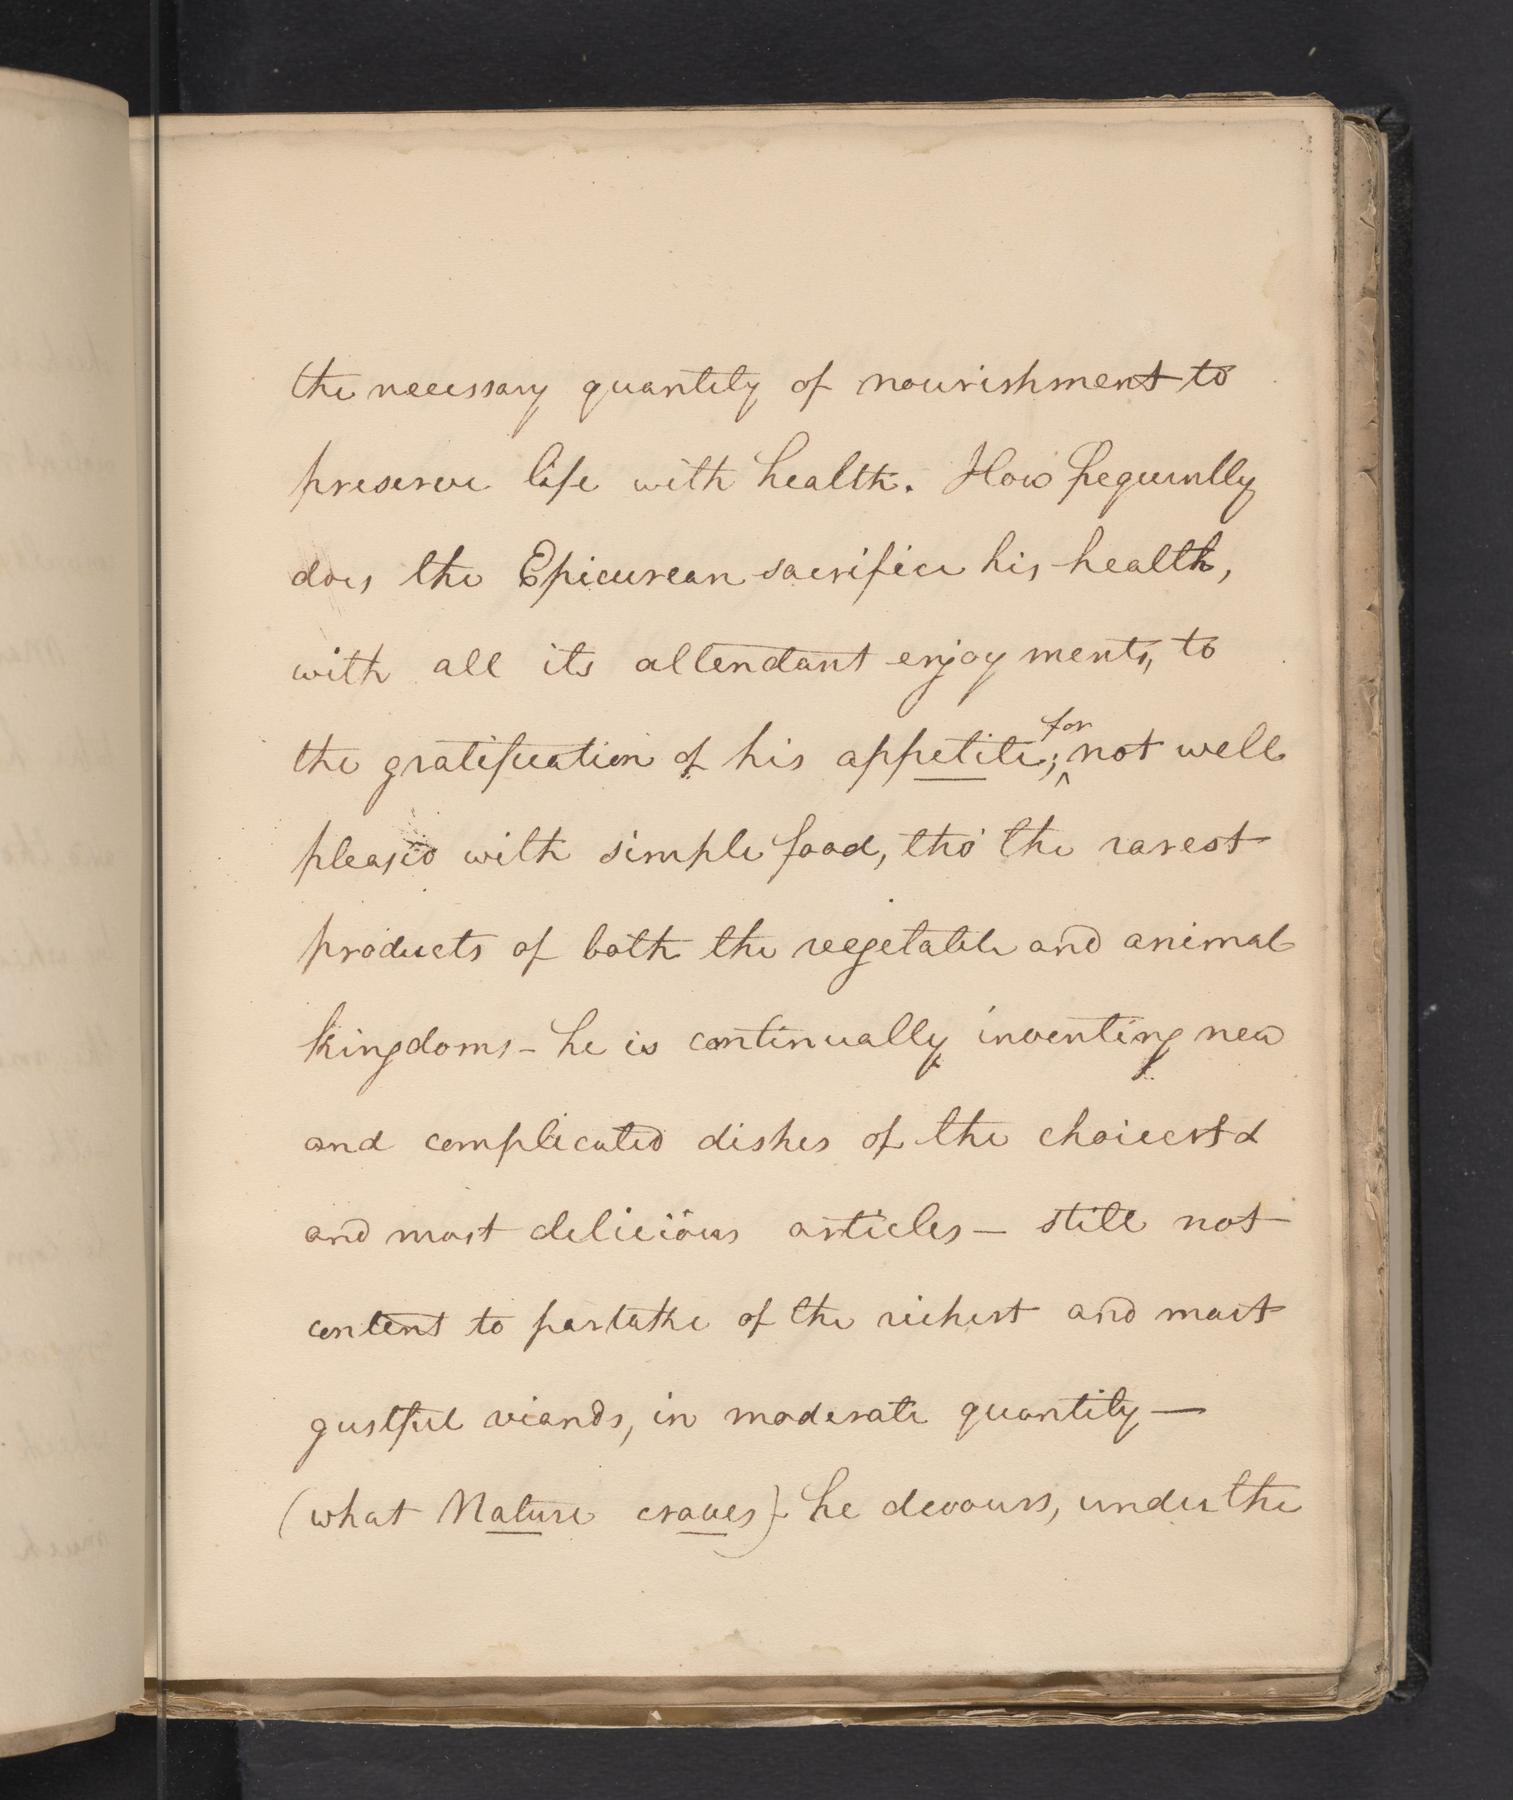 the necessary quantity of nourishment to
preserve life with health. How frequently
does the Epicurean sacrifice his health,
with all its attendant enjoyments, to
the gratification of his appetite; for not well
pleased with simple food, tho' the rarest
products of both the vegetable and animal
kingdoms - he is continually inventing new
and complicated dishes of the choicest &
and most delicious articles — still not
content to partake of the richest and most
gustful viands, in moderate quantity —
(what Nature craves) - he devours, under the